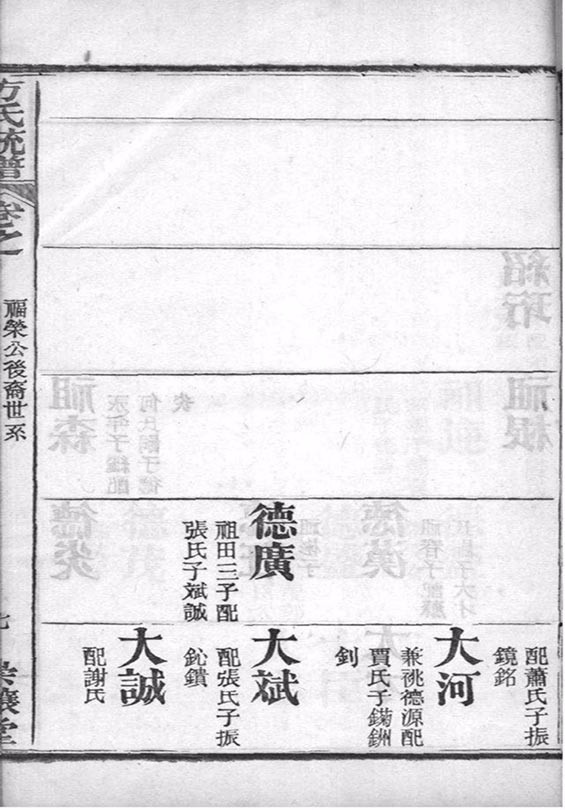 德廣
祖田三子配
張氏子斌誠
配蕭氏子振
鏡銘
大河
兼祧德源配
賈氏子
釗
大斌
配張氏子振
大誠
配謝氏
方氏統譜
卷之
福榮公後裔世系
七